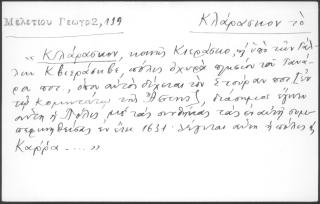 Μελετίου Γεωγρ 2, 139
Κλάρασκον τὸ
" Κλάρασκον, κοινῶς Κιεράσκο, ἢ ὑπὸ τῶν Γάλ-
λων Κβιεράσκε, πόλις ὀχυρὰ πλησίον τοῦ Τανά-
ρα ποτ., ὅπου αὐτὸς δέχεται τὸν Στούραν ποτ. ἐν
τῇ Κομητάτῳ τῆς Ἄστης, διάσημος ἔγινε
αὐτὴ ἡ Πόλις μὲ τὰς συνθήκας τὰς ἐν αὐτῇ συμ-
περανθείσας ἐν ἔτει 1631. λέγεται αὐτὴ ἡ πόλις ἡ
Καρρα .... "